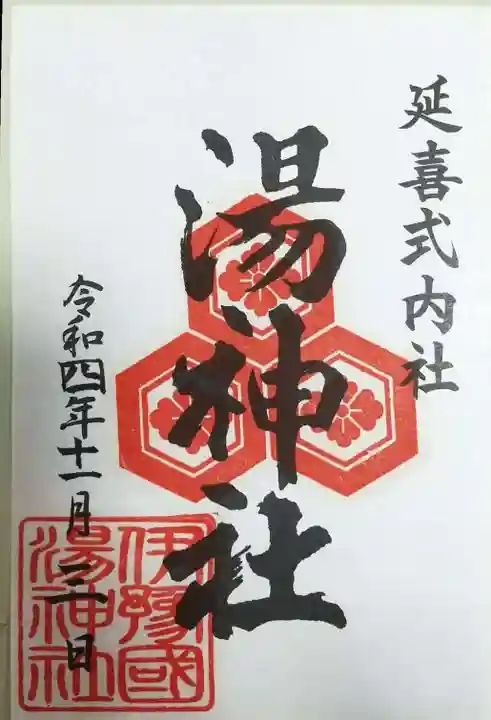 延喜式内社
湯神社
令和四年十一月三日
伊豫國
湯神社